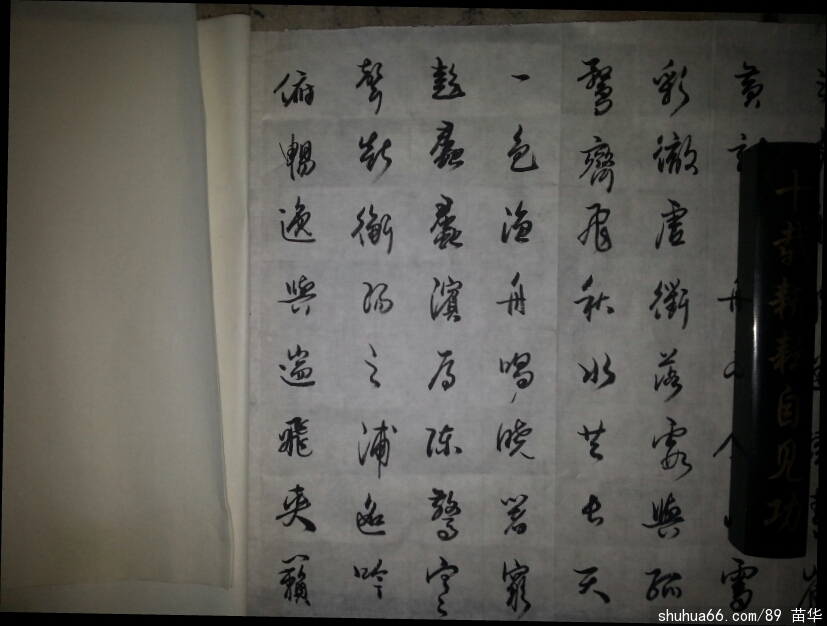 黃
彩徹雲衢落霞與孤
鶩齊飛秋水共長天
一色漁舟唱曉響窮
彭蠡蠡濱雁陣驚寒
聲斷衡陽之浦遙吟
俯暢逸興遄飛爽籟
十載耕耘自見功
shuhua66.com/89 苗华